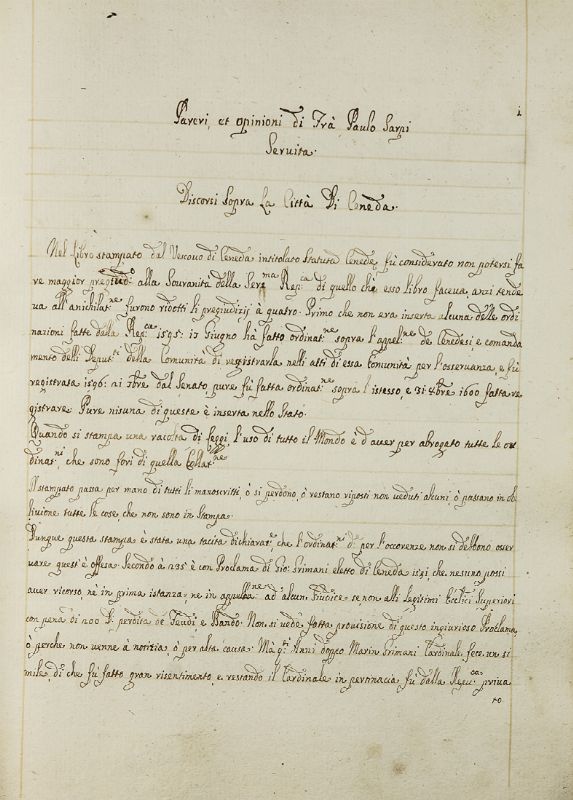 1
Pareri, et opinioni di Frà Paulo Sarpi
Servita.
Discorsi sopra la Città Di Ceneda.
Nel Libro stampato dal Vescovo di Ceneda intitolato Statuta Cenedę fù considerato non potersi fa
re maggior alla Souranità della Ser.ma Rep.ca di quello che esso libro faceva, anzi tende
va all'anichilat.ne furono ridotti li pregiudizij à quatro. Primo che non era inserta alcuna delle ordi
nazioni fatte dalla Rep.ca 1595. 17 Giugno hà fatto ordinat.ne sopra l'appel.ne de Cenedesi, e comanda
mento delli Deput.ti della Comunità di registrarla nelli atti di essa Comunità per l'osservanza, e fù
registrata 1596: ai 7bre dal Senato, pure fù fatta ordinat.ne sopra l'istesso, e 31 4bre 1600 fatta re
gistrare. Pure nisuna di queste è inserta nello Stato.
Quando si stampa una racolta di leggi, l'uso di tutto il Mondo è d'aver per abrogato tutte le or
dinat.ni, che sono fori di quella Collat.ne
Il stampato passa per mano di tutti li manoscritti, ò si perdono, ò restano riposti non veduti alcuni, ò passano in ob
livione tutte le cose, che non sono in Stampa.
Dunque questa stampa è stata una tacita dichiarat.ne, che l'ordinat.ni di per l'occorenze non si debbono osser
vare questi è offesa. Secondo à 235 è con Proclama di Gio: Grimani eletto di Ceneda 1591, che nesuno possi
aver ricorso, nè in prima istanza, ne in appellat.ne ad alcun Giudice se non alli Legitimi Ecclici Superiori
con pena di 200 D. perdita de feudi e Bando. Non si vede fatta provisione di questo ingiurioso Proclama,
ò perche non venne à notitia, ò per altra causa. Ma q.ti Anni doppo Marin Grimani Cardinale fece un si
mile, di che fù fatto gran risentimento, e restando il Cardinale in pertinacia fù dalla Repu.ca priva
to